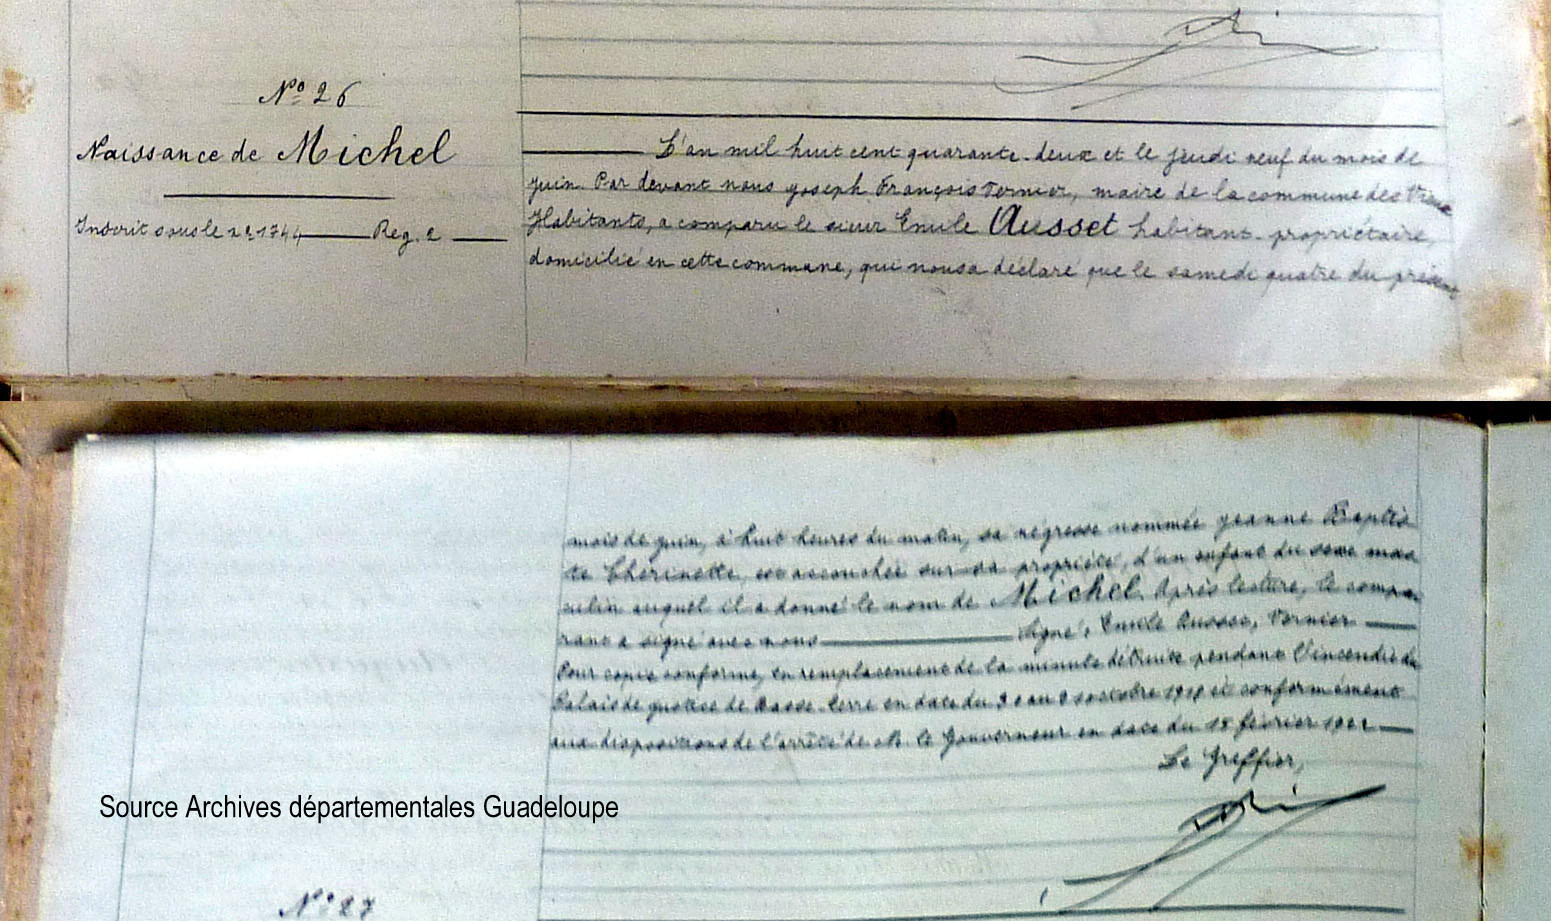 Nº 26
Naissance de Michel
Inscrit sous le nº 1744 Reg. 2
L'an mil huit cent quarante-deux et le jeudi neuf du mois de
juin. Par devant nous Joseph François Vernier, maire de la commune des Vieux
Habitants, a comparu le sieur Emile Ausset habitant-propriétaire,
domicilié en cette commune, qui nous a déclaré que le samedi quatre du présent
mois de juin, à huit heures du matin, sa négresse nommée Jeanne Baptis
te Chérinette, est accouchée sur sa propriété, d'un enfant du sexe mas
culin auquel il a donné le nom de Michel. Après lecture, le compa-
rant a signé avec nous Signé: Emile Ausset, Vernier
Pour copie conforme, en remplacement de la minute détruite pendant l'incendie du
Palais de justice de Basse-terre en date du au octobre et conformément
aux dispositions de l'arrêté de M. le Gouverneur en date du 18 février 1921
Le Greffier,
Source Archives départementales Guadeloupe
Nº 27